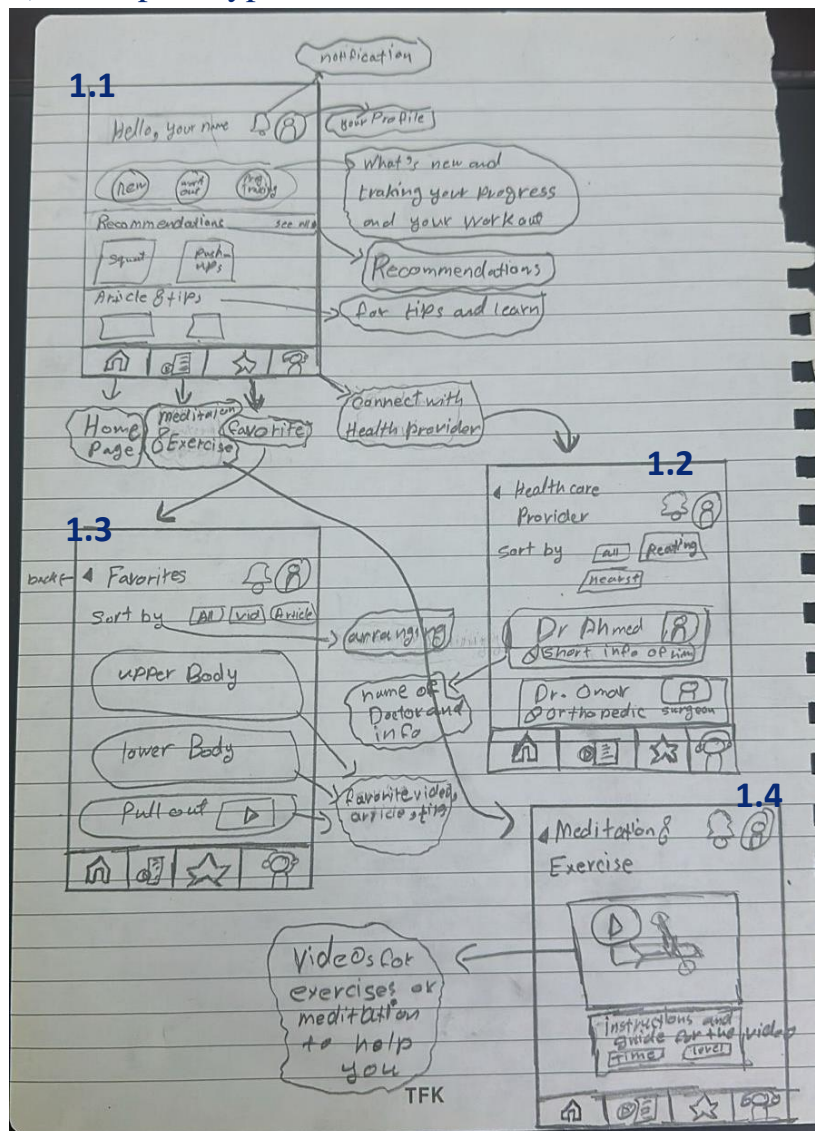 notification
1.1
Hello, your name
your Profile
new
work out
Prog traking
what's new and
traking your progress
and your workout
Recommendations
see all
Squat
Push-
ups
Recommendations
Article & tips
for tips and learn
Home
Page
meditaion
& Exercise
favorite
Connect with
Health provider
1.2
Health care
Provider
Sort by
all
Reating
nearst
Dr Ahmed
Short info of him
Dr. Omar
Orthopedic surgeon
1.3
back
Favorites
Sort by
All
vid
Article
arranging
upper Body
name of
Doctor and
info
lower Body
Pull out
favorite video,
article, tips
1.4
Meditation &
Exercise
instructions and
guide for the video
Time
level
Videos for
exercises or
meditation
to help
you
TFK